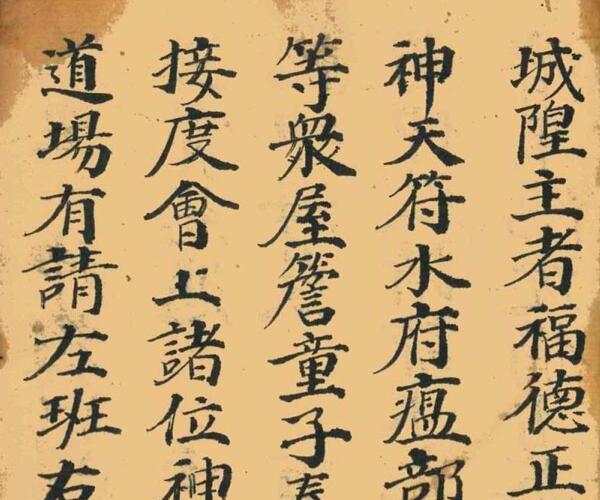 城隍主者福德正
神天符水府瘟部
等衆屋簷童子
接度會上諸位神
道場有請左班右